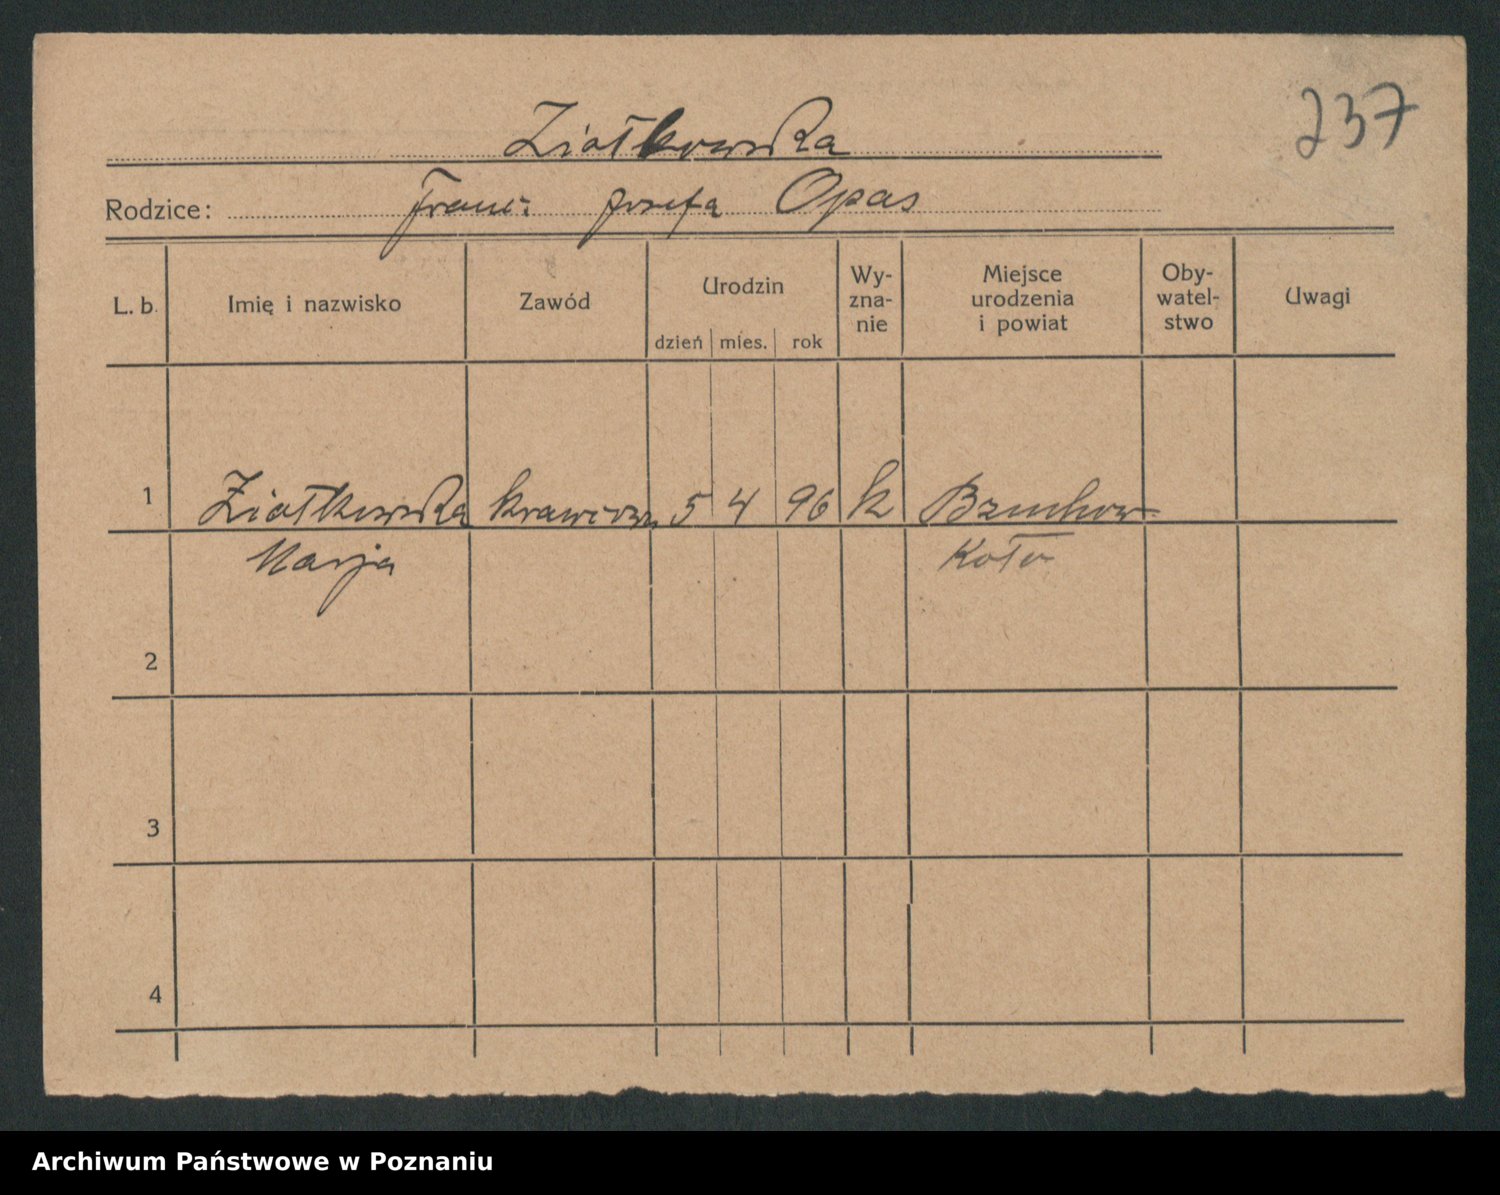 237
Ziółkowska
Rodzice: Franc. Józefa Opas
L. b. Imię i nazwisko Zawód Urodzin dzień mies. rok Wy-zna-nie Miejsce urodzenia i powiat Oby-watel-stwo Uwagi
1 Ziółkowska 5 4 96 k
Marja Koło
2
3
4
Archiwum Państwowe w Poznaniu